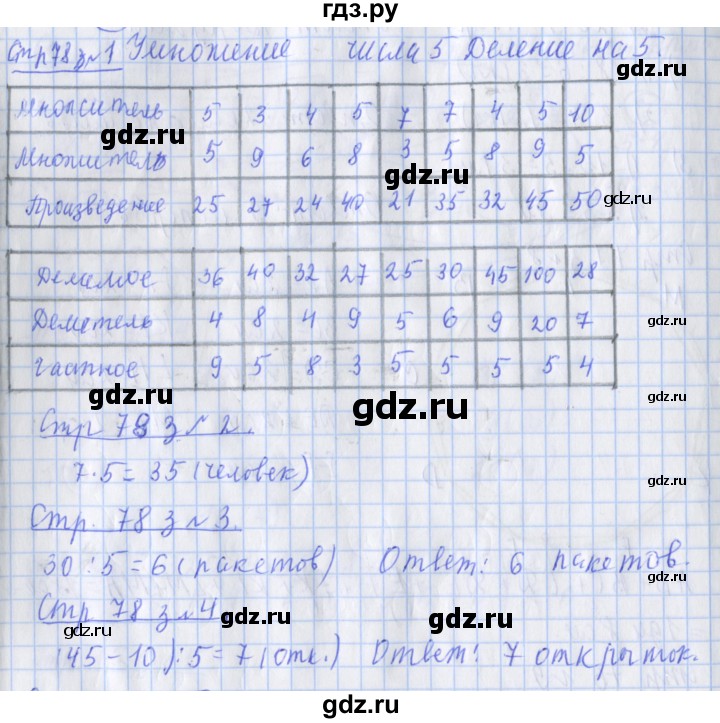 гдз.ру
Стр 78 з №1 Умножение числа 5 Деление на 5.
Множитель 5 3 4 5 7 7 4 5 10
gdz.ru
Множитель 5 9 6 8 3 5 8 9 5
gdz.ru gdz.ru
Произведение 25 27 24 40 21 35 32 45 50
Делимое 36 40 32 27 25 30 45 100 28
gdz.ru gdz.ru
Делитель 4 8 4 9 5 6 9 20 7
gdz.ru
Частное 9 5 8 3 5 5 5 5 4
gdz.ru gdz.ru gdz.ru
Стр 78 з №2.
7·5=35 (человек)
gdz.ru
Стр. 78 з №3.
gdz.ru gdz.ru
30:5=6 (пакетов) Ответ: 6 пакетов.
gdz.ru
Стр 78 з №4
gdz.ru gdz.ru
(45-10):5=7 (отк.) Ответ: 7 открыток.
gdz.ru gdz.ru
gdz.ru